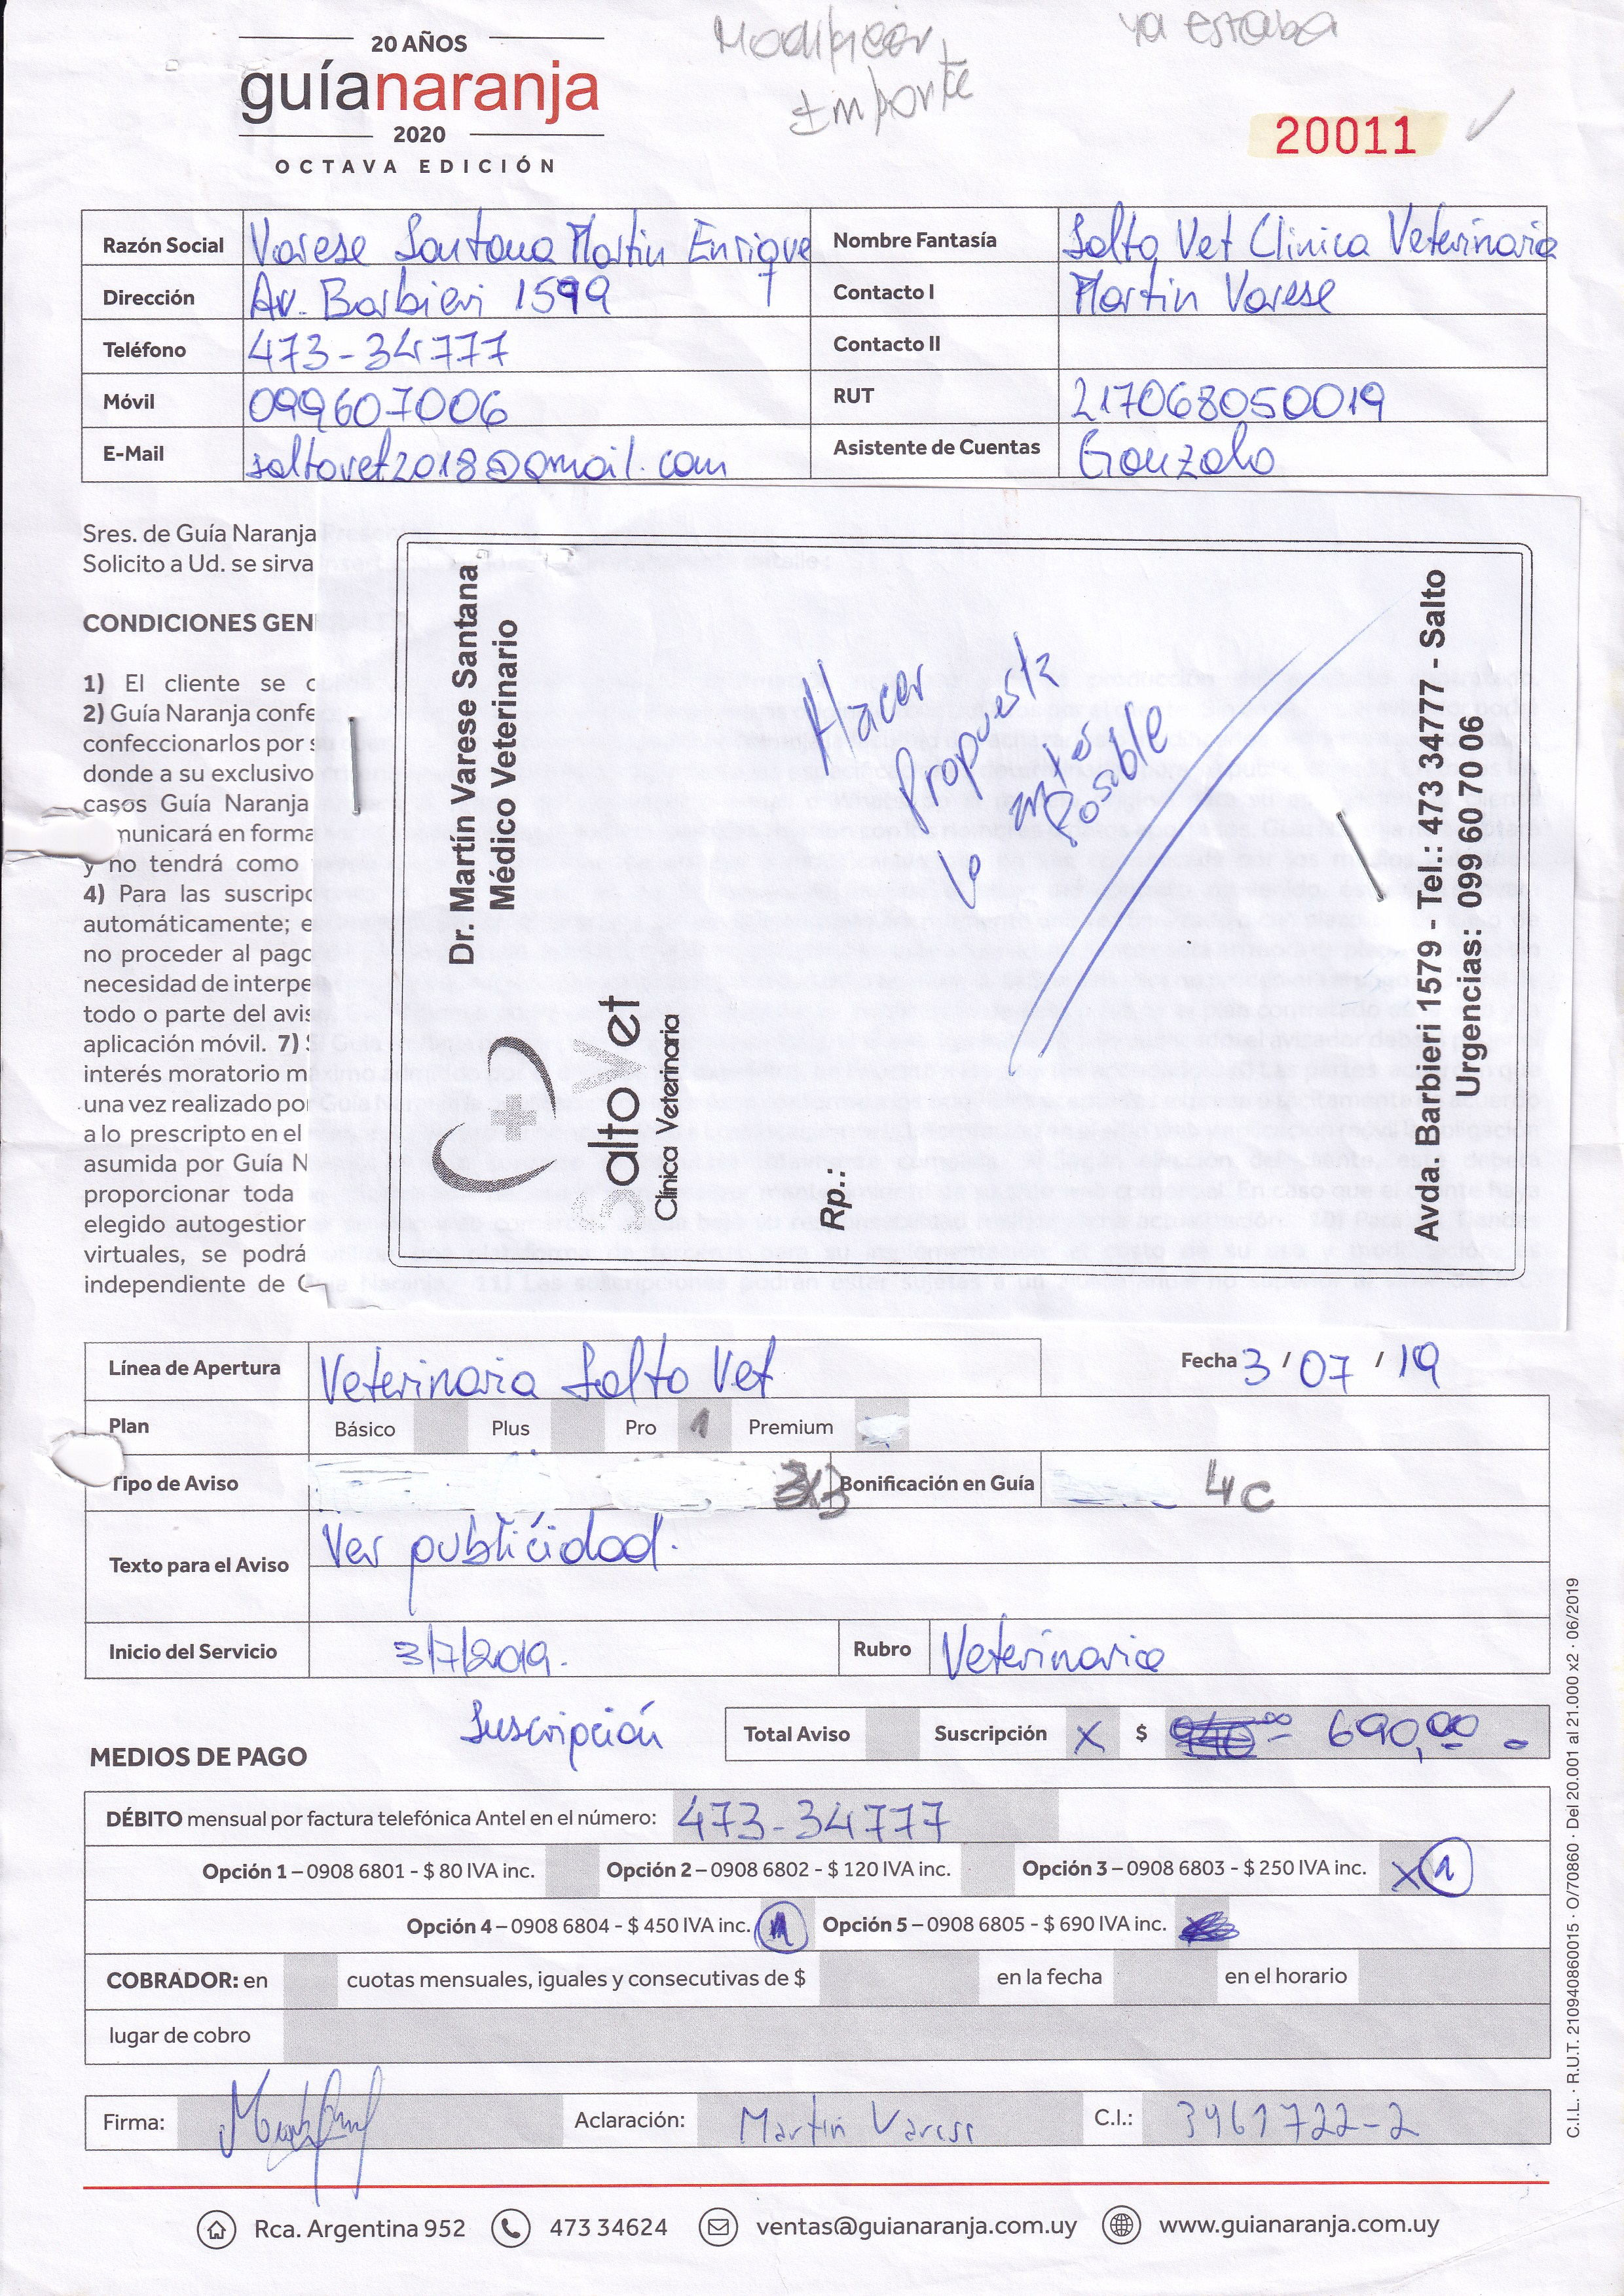 20 AÑOS
guíanaranja
2020
OCTAVA EDICIÓN
Modificar
Importe
ya estaba
20011
Razón Social Varese Santana Martin Enrique Nombre Fantasía Salto Vet Clinica Veterinaria
Dirección Av. Barbieri 1599 Contacto I Martin Varese
Teléfono 473-34777 Contacto II
Móvil 099607006 RUT 217068050019
E-Mail saltovet2018@gmail.com Asistente de Cuentas Gonzalo
Sres. de Guía Naranja
Solicito a Ud. se sirva
CONDICIONES GEN
1) El cliente se
2) Guía Naranja confe
confeccionarlos por s
donde a su exclusivo
casos Guía Naranja
municará en forma
y no tendrá como
4) Para las suscripc
automáticamente; e
no proceder al pago
necesidad de interpe
todo o parte del avis
aplicación móvil. 7)
interés moratorio m
una vez realizado por
a lo prescripto en el
asumida por Guía N
proporcionar toda
elegido autogestior
virtuales, se podrá
independiente de
Dr. Martín Varese Santana
Médico Veterinario
SaltoVet
Clínica Veterinaria
Rp.:
Hacer
Propuesta
lo antes
Posable
Avda. Barbieri 1579 - Tel.: 473 34777 - Salto
Urgencias: 099 60 70 06
Línea de Apertura Veterinaria Salto Vet Fecha 3 / 07 / 19
Plan Básico Plus Pro 1 Premium
Tipo de Aviso 3x3 Bonificación en Guía 4c
Texto para el Aviso Ver publicidad.
Inicio del Servicio 3/7/2019. Rubro Veterinaria
Suscripción
Total Aviso Suscripción X $ 690,00
MEDIOS DE PAGO
DÉBITO mensual por factura telefónica Antel en el número: 473-34777
Opción 1 – 0908 6801 - $ 80 IVA inc. Opción 2 – 0908 6802 - $ 120 IVA inc. Opción 3 – 0908 6803 - $ 250 IVA inc. X 1
Opción 4 – 0908 6804 - $ 450 IVA inc. 1 Opción 5 – 0908 6805 - $ 690 IVA inc.
COBRADOR: en cuotas mensuales, iguales y consecutivas de $ en la fecha en el horario
lugar de cobro
Firma: Aclaración: Martín Varese C.I.: 3961722-2
C.I.L. · R.U.T. 210940860015 · O/70860 · Del 20.001 al 21.000 x2 · 06/2019
Rca. Argentina 952 473 34624 ventas@guianaranja.com.uy www.guianaranja.com.uy